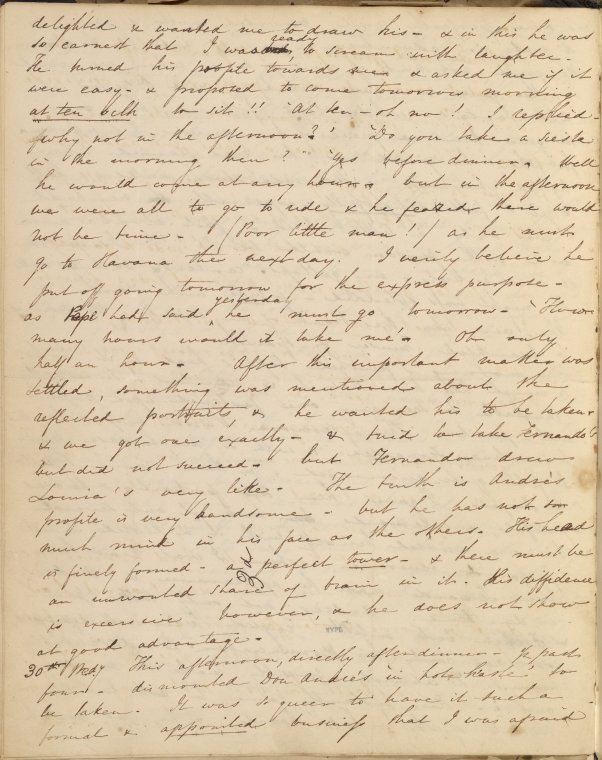 delighted & wanted me to draw his - & in this he was
so earnest that I was ready to scream with laughter.
He turned his profile towards me & asked me if it
were easy - & proposed to come tomorrow morning
at ten oclk to sit!! "At ten - oh no! I replied -
why not in the afternoon?' "Do you take a siesta
in the morning then?" "Yes before dinner. Well
he would come at any hour. but in the afternoon
we were all to go to ride & he feared there would
not be time - (Poor little man!) as he must
go to Havana the next day. I verily believe he
put off going tomorrow for the express purpose -
as Pepe had said yesterday he must go tomorrow - "How
many hours would it take me'. Oh only
half an hour - After this important matter was
settled, something was mentioned about the
reflected portraits, & he wanted his to be taken.
& we got one exactly - & tried to take Fernando's
but did not succeed - but Fernando drew
Louisa's very like. The truth is Andrés
profile is very handsome - but he has not so
much mind in his face as the others. His head
is finely formed - a perfect tower - & there must be
an unwonted share of brain in it. His diffidence
is excessive however, & he does not show
at good advantage -
30th Wedy This afternoon, directly after dinner - ½ past
four - dismounted Don Andres in hot haste to
be taken. It was so queer to have it such a
formal & appointed business that I was afraid
NYPL